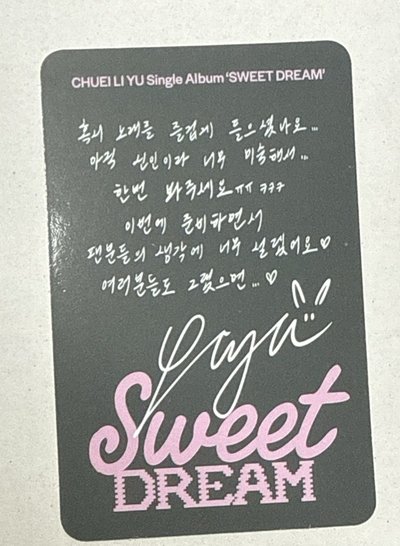 CHUEI LI YU Single Album 'SWEET DREAM'
혹시 노래를 즐겁게 들으셨나요...
아직 신인이라 너무 미숙해서...
한번 봐주세요ㅠㅠ ㅋㅋㅋ
이번에 준비하면서
팬분들의 생각에 너무 설렜어요♡
여러분들도 그랬으면...♡
Yaya
Sweet
DREAM